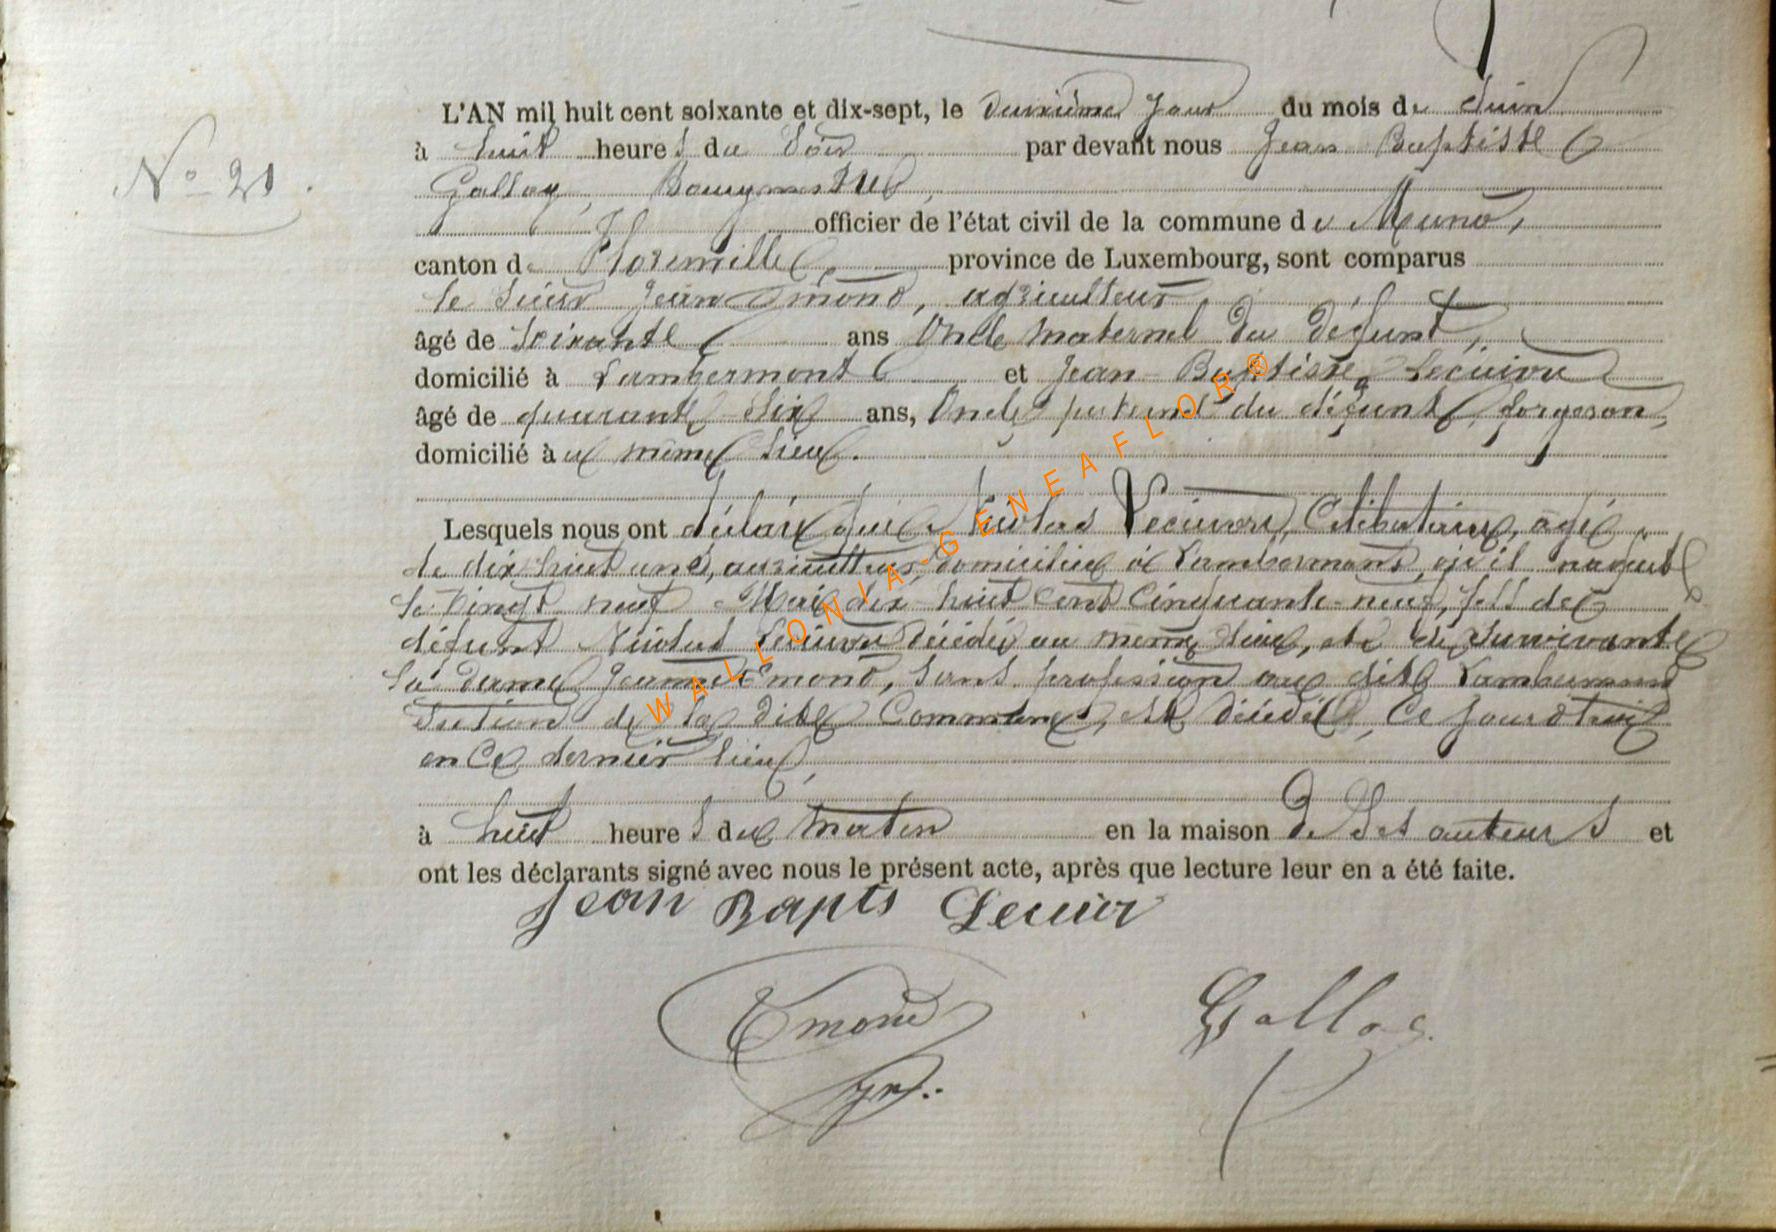 L'AN mil huit cent soixante et dix-sept, le deuxième jour du mois de Juin
à huit heures du Soir par devant nous Jean Baptiste
N° 21.
Galloy, Bourgmestre,
officier de l'état civil de la commune de Muno,
canton de Florenville, province de Luxembourg, sont comparus
le Sieur Jean Emond, agriculteur
âgé de soixante ans Oncle maternel du défunt,
domicilié à Lambermont et Jean-Baptiste Lecuivre
âgé de quarante-six ans, Oncle paternel du défunt, forgeron,
domicilié à ce même lieu.
Lesquels nous ont déclaré que Nicolas Lecuivre, Célibataire, âgé
de dix huit ans, domicilié à Lambermont, où il naquit
le Vingt-neuf Mai dix-huit Cent Cinquante-neuf, fils de
défunt Nicolas Lecuivre décédé au même lieu, et de survivante
la dame Jeanne Emond, sans profession au dit Lambermont
section de la dite Commune, est décédé, Ce jourd'hui
en Ce dernier lieu,
à huit heures du matin en la maison de Ses auteurs et
ont les déclarants signé avec nous le présent acte, après que lecture leur en a été faite.
Jean Bapts Lecuivr
Emond Galloy
WALLONIA-GENEAFLOR®